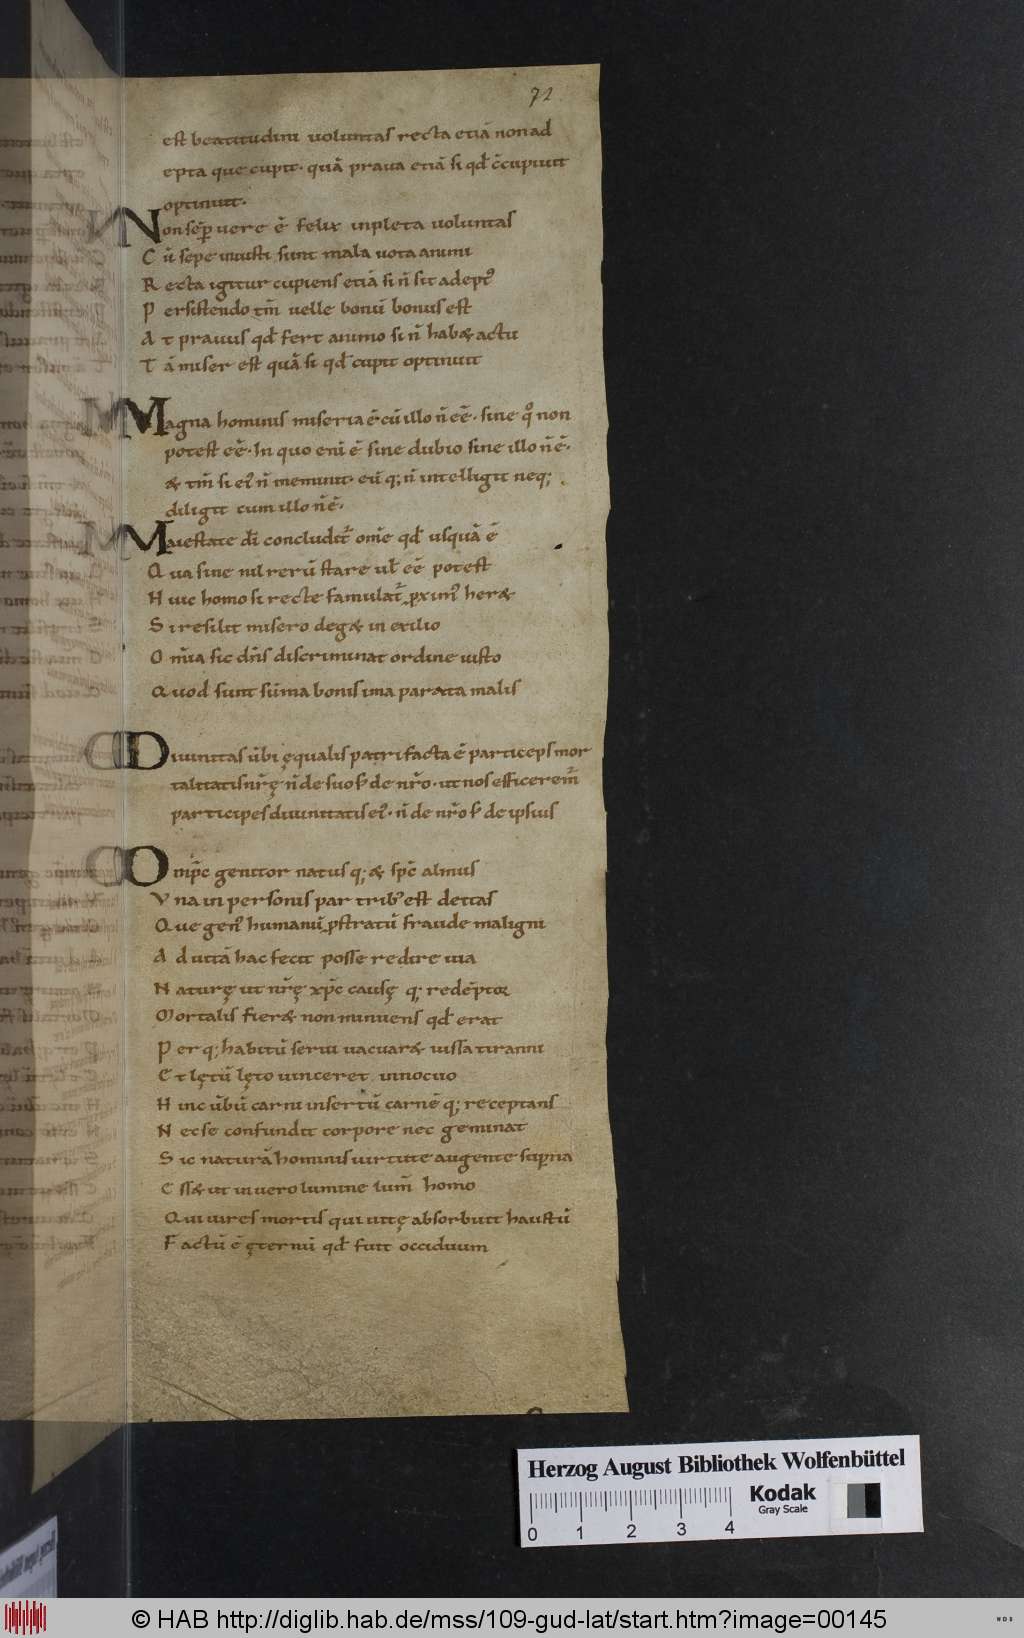 72
est beatitudini voluntas recta etiā non ad
epta que cupit· quā prava etiā si qd̄ c̄cupiuit
optinuit·
Non sēp vere ē felix inpleta voluntas
Cū sepe iniusti sunt mala vota animi
Recta igitur cupiens etiā si n̄ sit adept᾽
Persistendo tm̄ velle bonū bonus est
At pravus qd̄ fert animo si n̄ habę actu
Tā miser est quā si qd̄ cupit optinuit
Magna hominis miseria ē cū illo n̄ eē· sine qͦ non
potest eē· In quo enī ē sine dubio sine illo n̄ ē·
& tm̄ si ei᾽ n̄ meminit· eū q; n̄ intelligit neq;
diligit cum illo n̄ ē·
Maiestate dī concludit᷑ om̄e qd̄ usquā ē
Qua sine nil rerū stare ul̄ eē potest
Huic homo si recte famulat᷑ ꝓxim᾽ her&
Si resilit misero deg& in exilio
Om̄ia sic dn̄s discriminat ordine iusto
Quod sunt sūma bonis ima parata malis
Divinitas ūbi ęqualis patri facta ē particeps mor
talitatis nr̄ę n̄ de suo sꝫ de nr̄o· ut nos efficerem᷑
participes divinitatis ei᾽· n̄ de nr̄o sꝫ de ipsius
Omp̄c genitor natus q; & sp̄c almus
Una in personis par trib᾽ est deitas
Que gen᾽ humanū ꝓstratū fraude maligni
Ad vitā hac fecit posse redire via
Naturę ut nr̄ę xp̄c causę q; redēptor
Mortalis fier& non minuens qd̄ erat
Per q; habitū servi vacuar& iussa tiranni
Et lętū lęto vinceret innocuo
Hinc ūbū carni insertū carnē q; receptans
Nec se confundit corpore nec geminat
Sic naturā hominis virtute augente supna
Ess& ut in vero lumine lum̄ homo
Qui vires mortis qui vitę absorbuit haustū
Factū ē ęternū qd̄ fuit occiduum
Herzog August Bibliothek Wolfenbüttel
Kodak
Gray Scale
0 1 2 3 4
© HAB http://diglib.hab.de/mss/109-gud-lat/start.htm?image=00145